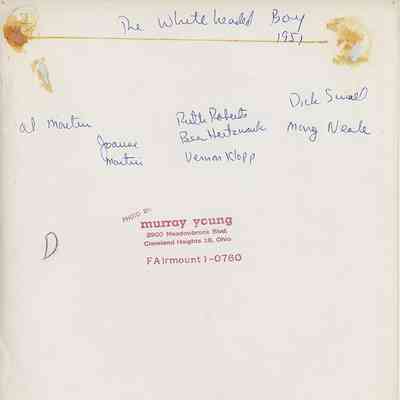 The Whiteheaded Boy
1951
Dick Smead
Al Martin
Ruth Roberts
Joanne
Martin
Bea Hertzmark
Mary Neale
Vernon Klopp
PHOTO BY
murray young
2900 Meadowbrook Blvd.
Cleveland Heights 18, Ohio
FAirmount 1-0760
D